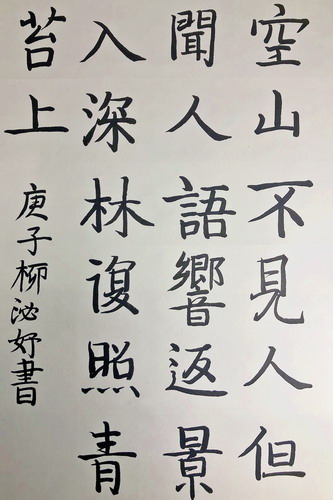 空山不見人但
聞人語響返景
入深林復照青
苔上
庚子柳泌妤書